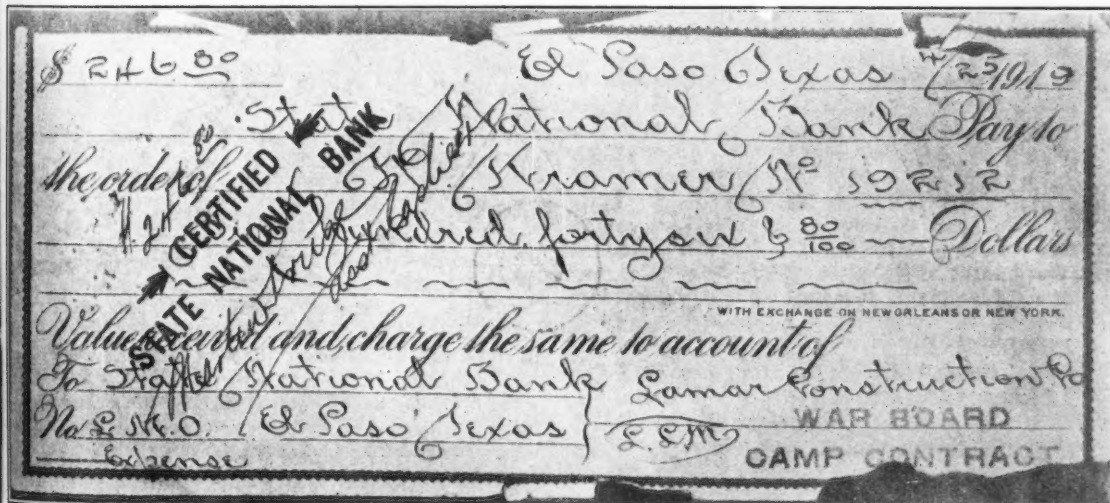 $ 246 80 El Paso Texas 4/25 1919
State National Bank Pay to
the order of Kramer No 19212
Hundred forty six & 80/100 Dollars
CERTIFIED
STATE NATIONAL BANK
WITH EXCHANGE ON NEW ORLEANS OR NEW YORK.
Value received and charge the same to account of
To State National Bank Lamar Construction Co
No. El Paso Texas L.L.M
Expense
WAR BOARD
CAMP CONTRACT